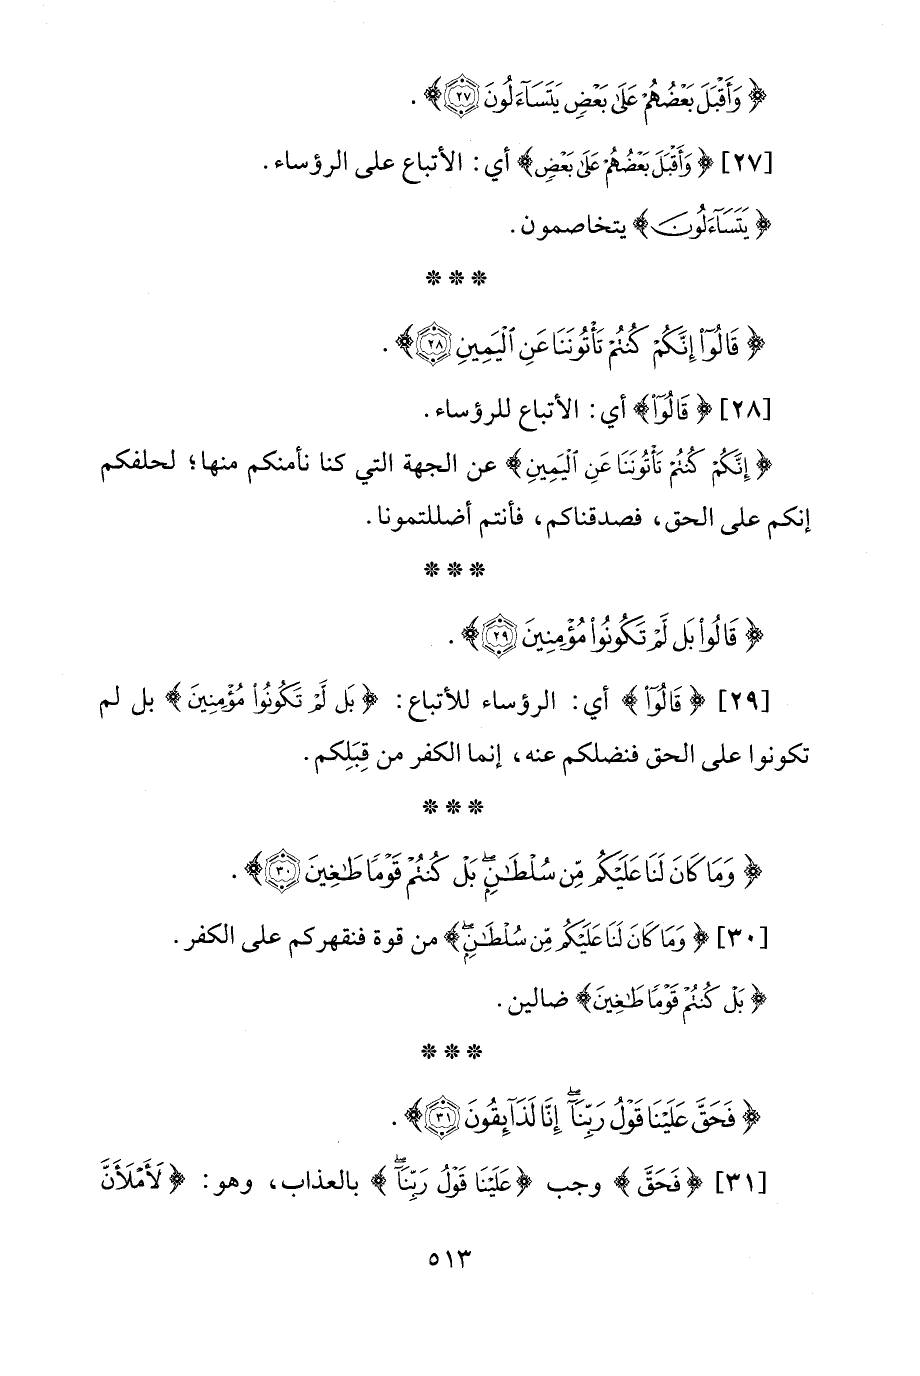 ﴿ وَأَقْبَلَ بَعْضُهُمْ عَلَىٰ بَعْضٍ يَتَسَآءَلُونَ ٢٧ ﴾ .
[٢٧] ﴿ وَأَقْبَلَ بَعْضُهُمْ عَلَىٰ بَعْضٍ ﴾ أي: الأتباع على الرؤساء.
﴿ يَتَسَآءَلُونَ ﴾ يتخاصمون.
***
﴿ قَالُوٓا۟ إِنَّكُمْ كُنتُمْ تَأْتُونَنَا عَنِ ٱلْيَمِينِ ٢٨ ﴾ .
[٢٨] ﴿ قَالُوٓا۟ ﴾ أي: الأتباع للرؤساء.
﴿ إِنَّكُمْ كُنتُمْ تَأْتُونَنَا عَنِ ٱلْيَمِينِ ﴾ عن الجهة التي كنا نأمنكم منها؛ لحلفكم
إنكم على الحق، فصدقناكم، فأنتم أضللتمونا.
***
﴿ قَالُوا۟ بَل لَّمْ تَكُونُوا۟ مُؤْمِنِينَ ٢٩ ﴾ .
[٢٩] ﴿ قَالُوٓا۟ ﴾ أي: الرؤساء للأتباع: ﴿ بَل لَّمْ تَكُونُوا۟ مُؤْمِنِينَ ﴾ بل لم
تكونوا على الحق فنضلكم عنه، إنما الكفر من قِبَلِكم.
***
﴿ وَمَا كَانَ لَنَا عَلَيْكُم مِّن سُلْطَٰنٍۭ ۖ بَلْ كُنتُمْ قَوْمًا طَٰغِينَ ٣٠ ﴾ .
[٣٠] ﴿ وَمَا كَانَ لَنَا عَلَيْكُم مِّن سُلْطَٰنٍۭ ۖ ﴾ من قوة فنقهركم على الكفر.
﴿ بَلْ كُنتُمْ قَوْمًا طَٰغِينَ ﴾ ضالين.
***
﴿ فَحَقَّ عَلَيْنَا قَوْلُ رَبِّنَآ ۖ إِنَّا لَذَآئِقُونَ ٣١ ﴾ .
[٣١] ﴿ فَحَقَّ ﴾ وجب ﴿ عَلَيْنَا قَوْلُ رَبِّنَآ ۖ ﴾ بالعذاب، وهو: ﴿ لَأَمْلَأَنَّ
٥١٣